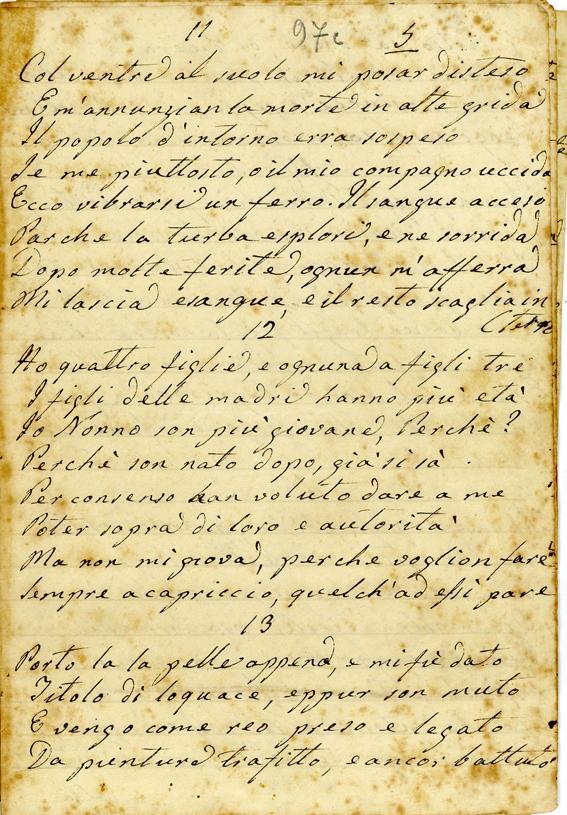 11 97c 5
Col ventre al suolo mi posar disteso
E m'annunzian la morte in alte grida
Il popolo d'intorno erra sospeso
Se me piuttosto, o il mio compagno uccida
Ecco vibrarsi un ferro. Il sangue acceso
Par che la turba esplori, e ne sorrida
Dopo molte ferite, ognun m'afferra
Mi lascia esangue, e il resto scaglia in
12 (terra
Ho quattro figlie, e ognuna a figli tre
I figli delle madri hanno più età
Io Nonno son più giovane, Perchè?
Perchè son nato dopo, già si sà.
Per consenso han voluto dare a me
Poter sopra di loro e autorità
Ma non mi giova, perche voglion fare
Sempre a capriccio, quelch'ad essi pare
13
Porto la la pelle appena, e mi fù dato
Titolo di loquace, eppur son muto
E vengo come reo preso e legato
Da punture trafitto, e ancor battuto